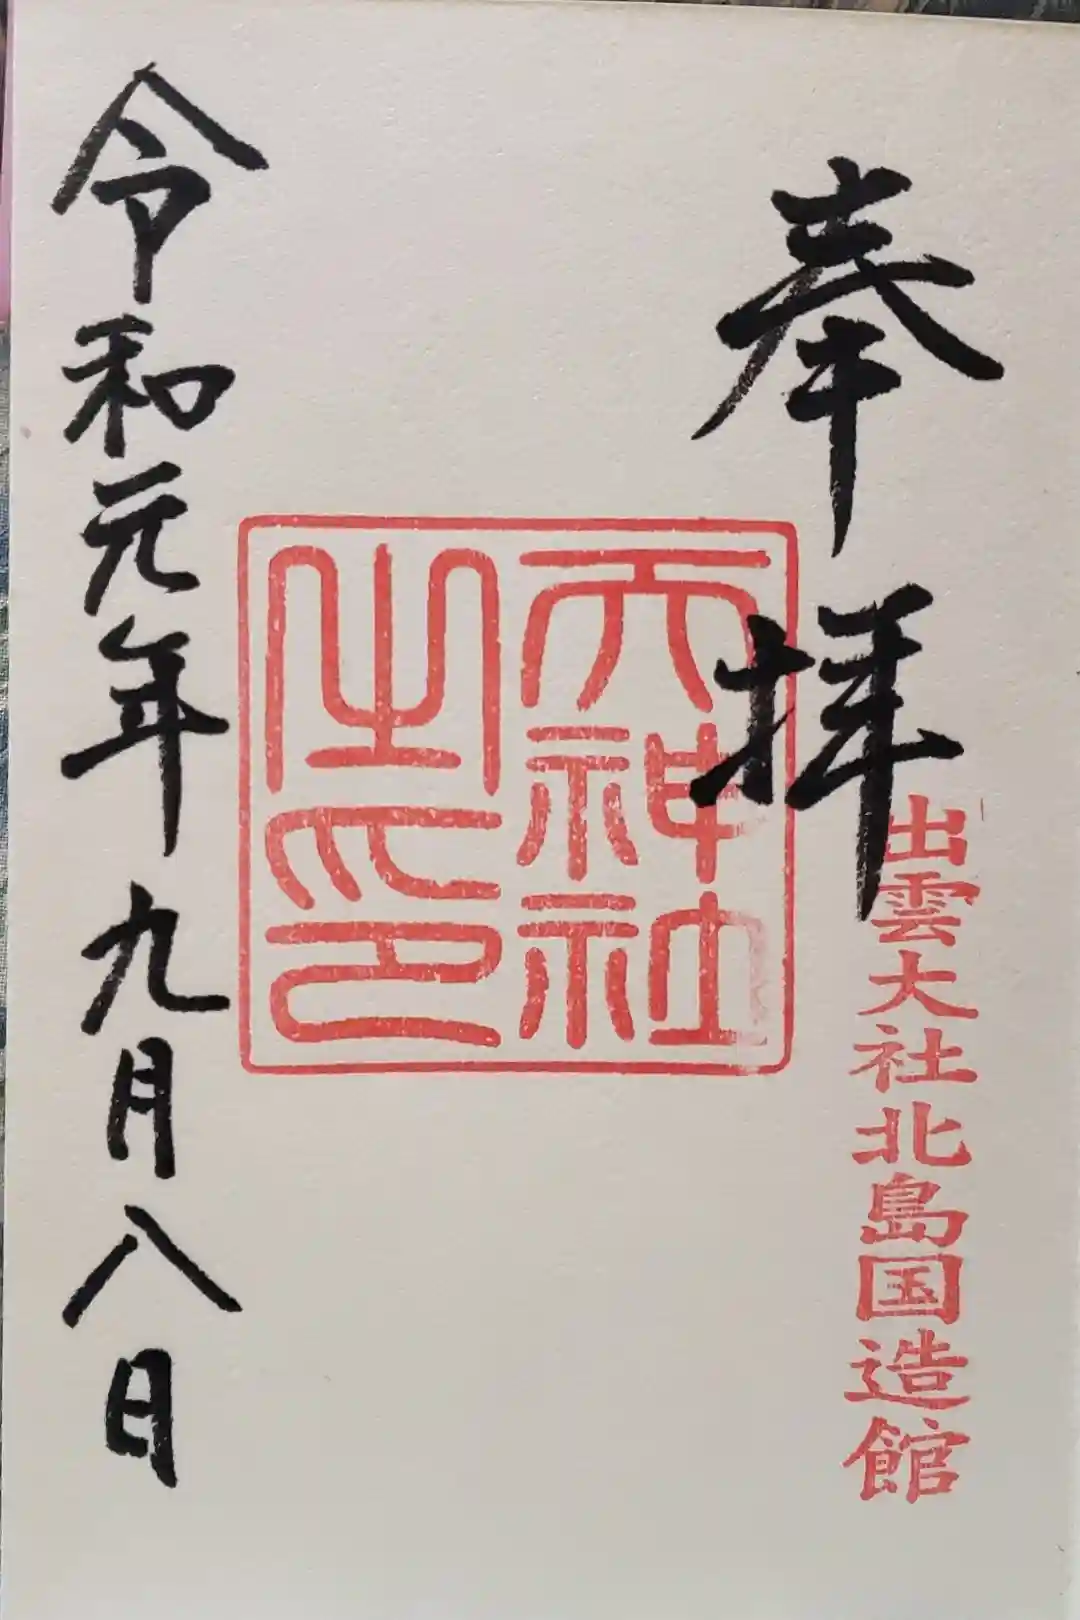 奉拝
出雲大社北島国造館
天神社
之印
令和元年九月八日